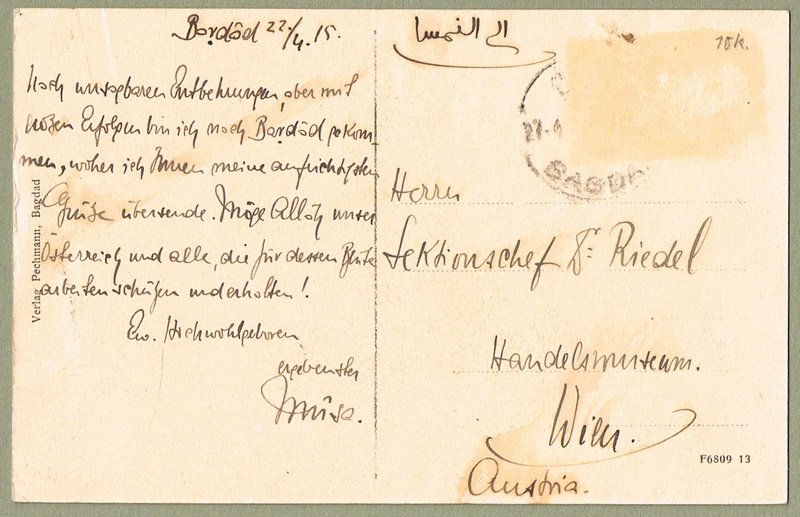 Bardād 22./4. 15.
Nach unsagbaren Entbehrungen, aber mit
großen Erfolgen bin ich nach Bardād gekom-
men, woher ich Ihnen meine aufrichtigsten
Grüße übersende. Möge Allāh unser
Österreich und alle, die für dessen Blüte
arbeiten schützen und erhalten!
Ew. Hochwohlgeboren
ergebenster
Mūsa.
Verlag Pechmann, Bagdad
الى النمسا
10k.
27-4
BAGD
Herrn
Sektionschef Dr. Riedel
Handelsmuseum.
Wien.
Austria.
F6809 13